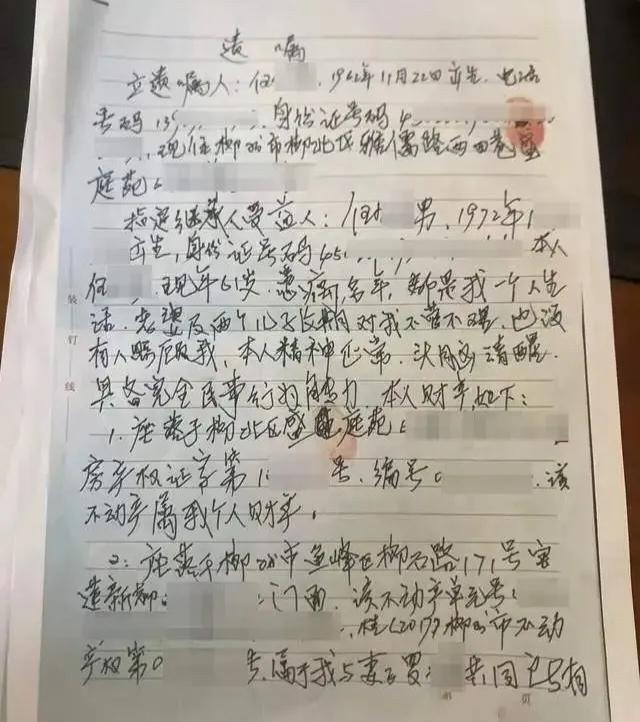 遗嘱
立遗嘱人：任 1962年11月22日出生.电话
号码139 身份证号码4
现住柳州市柳北区 路西四巷
庭苑
指定继承人受益人： 男、1972年1
出生,身份证号码45 本人
任 现年61岁.患病多年,都是我一个人生
活.老婆及两个儿子长期对我不管不理.也没
有人照顾我、本人精神正常、头脑清醒.
具备完全民事行为能力.本人财产如下：
1、座落于柳北区 庭苑
房产权证字第1 号.编号 .该
不动产属我个人财产。
2：座落于柳州市鱼峰区柳石路171号
门面.该不动产单元号：
桂(2017)柳州市不动
产权第0 号.属于我与妻子覃 共同
装
订
线
第 页